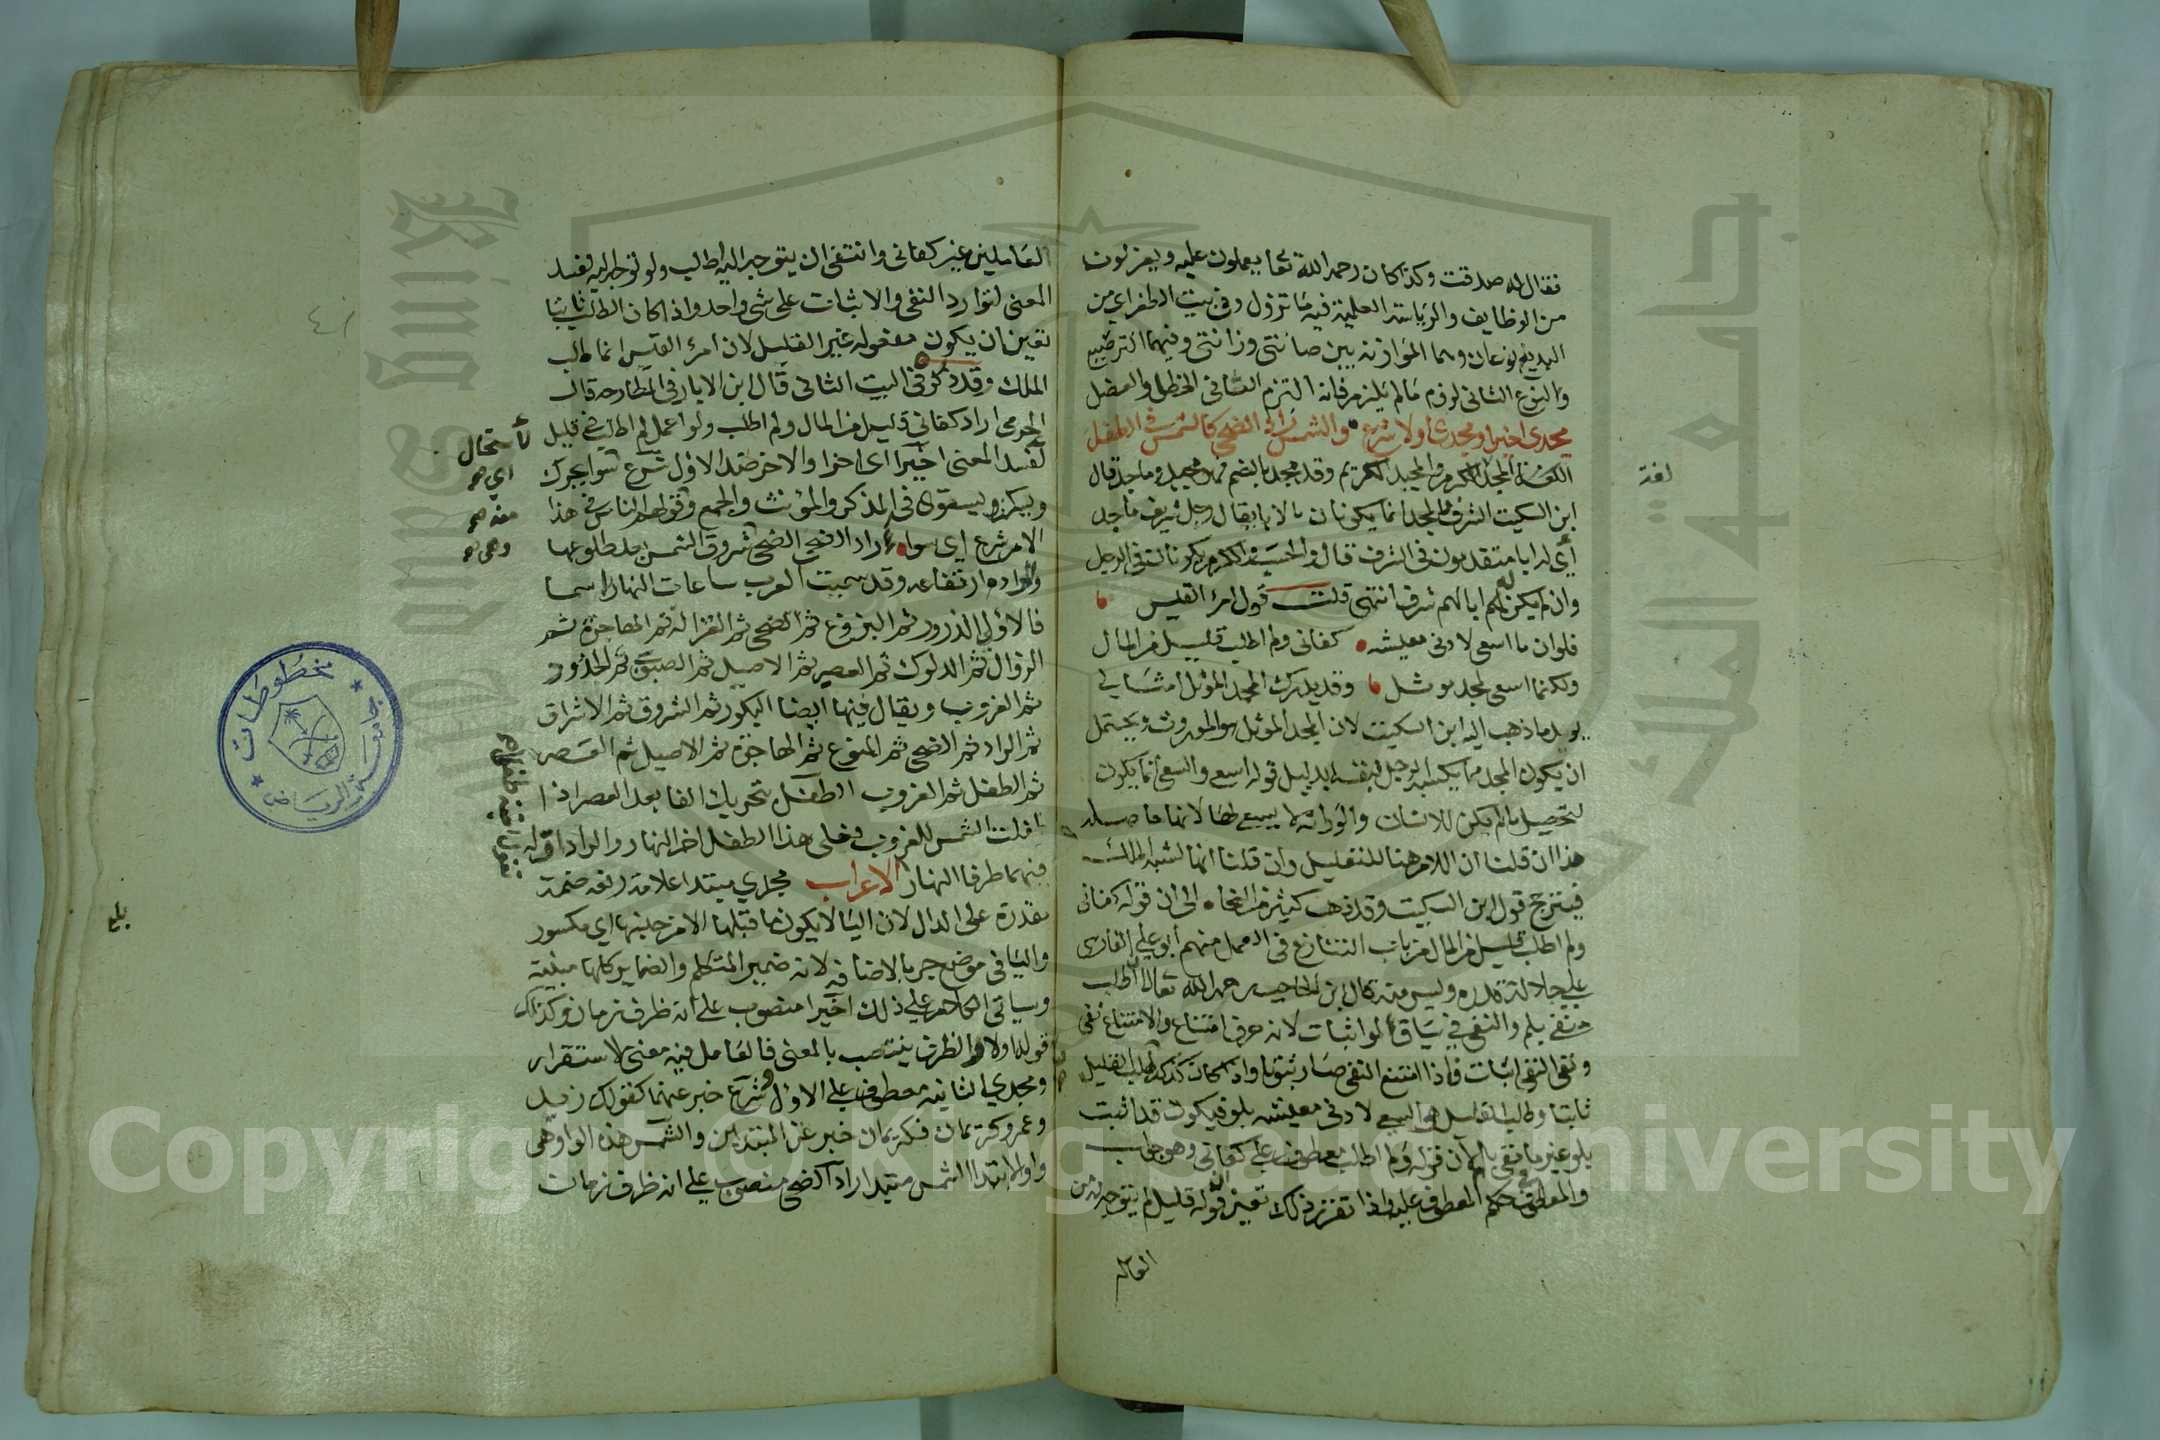 فقال له صدقت وكذا كان رحمه الله تعا يعملون عليه ويعزلون
من الوظايف والرياسة العلية فيه ما تزول وفي بيت الطغراي من
البديع نوعان وهما الموازنة بين صانتني وزانتني وفيهما الترصيع
والنوع الثاني لزوم ما لم يلزم فانه التزم الطا في الخطل والعطل
مجدي اخيرا ومجدي اولا شرع والشمس راد الضحى كالشمس في الطفل
اللغة المجد الكرم والمجيد الكريم وقد مجد بالضم فهو مجيد وماجد قال
ابن السكيت الشرف والمجد انما يكونان بالابا يقال رجل شريف ماجد
اي له ابا متقدمون في الشرف قال والحسب والكرم يكونان في الرجل
وان لم يكن له ابا لهم شرف انتهى قلت قول امرء القيس
فلو ان ما اسعى لادنى معيشه كفاني ولم اطلب قليل من المال
ولكنما اسعى لمجد موثل وقد يدرك المجد الموثل امثالي
يويد ما ذهب اليه ابن السكيت لان المجد الموثل هو الموروث ويحتمل
ان يكون المجد مما يكسبه الرجل لنفسه بدليل قوله اسعى والسعى انما يكون
لتحصيل ما لم يكن للانسان والوراثة لا يسعى لها لانها حاصله
هذا ان قلنا ان اللام هنا للتعليل وان قلنا انها لشبه الملك
فيترجح قول ابن السكيت وقد ذهب كثير من النحاه الى ان قوله كفاني
ولم اطلب قليل من المال من باب التنازع في العمل منهم ابو علي الفارسي
على جلالة قدره وليس منه قال ابن الحاجب رحمه الله تعالى اطلب
منفي بلم والنفي في سياق لو اثبات لانه حرف امتناع والامتناع نفي
ونفي النفي اثبات فاذا امتنع النفي صار ثبوتا واذا كان كذلك طلب القليل
ثابتا وطلب القليل هو السعي لادنى معيشه بلو فيكون قد اثبت
بلو عين ما نفي بها لان قوله ولم اطلب معطوف على كفاني وهو جواب
والمعطوف في حكم المعطوف عليه واذا تقرر ذلك تعين ان قوله قليل لم يتوجه له من
العاملين
لغة
العاملين غير كفاني وانتفى ان يتوجه اليه اطلب ولو توجه اليه لفسد
المعنى لتوارد النفي والاثبات على شي واحد واذا كان الطلب ثابتا
تعين ان يكون مفعوله غير القليل لان امرء القيس انما طلب
الملك وقد ذكره في البيت الثاني قال ابن الاباري في المطارحه قال
الجرمي اراد كفاني قليل من المال ولم اطلب ولو اعمل لم اطلب في قليل
لفسد المعنى اخيرا اي اخرا والاخر ضد الاول شرع سوا يحرك
ويسكن ويستوي في المذكر والمونث والجمع وقولهم الناس في هذا
الامر شرع اي سواء راد الضحى الضحى شروق الشمس بعد طلوعها
وراده ارتفاعه وقد سمت العرب ساعات النهار اسما
فالاولى الذرور ثم البزوغ ثم الضحى ثم الغزالة ثم الهاجرة ثم
الزوال ثم الدلوك ثم العصر ثم الاصيل ثم الصبوب ثم الحدور
ثم الغروب ويقال فيها ايضا البكور ثم الشروق ثم الاشراق
ثم الراد ثم الضحى ثم المتوع ثم الهاجرة ثم الاصيل ثم العصر
ثم الطفل ثم الغروب الطفل بتحريك الفا بعد العصر اذا
طفلت الشمس للغروب فعلى هذا الطفل اخر النهار والراد اوله
فهما طرفا النهار الاعراب مجدي مبتدا علامة رفعه ضمة
مقدرة على الدال لان اليا لا يكون ما قبلها الا من جنسها اي مكسور
واليا في موضع جر بالاضافة لانه ضمير المتكلم والضماير كلها مبنية
وسياتي الكلام على ذلك اخيرا منصوب على انه ظرف زمان وكذلك
قوله اولا والظرف ينتصب بالمعنى فالعامل فيه معنى الاستقرار
ومجدي الثانية معطوف على الاول وشرع خبر عنهما كقولك زيد
وعمرو كريمان فكريمان خبر عن المبتداين والشمس هذه الواو هي
واو الابتدا الشمس مبتدا راد الضحى منصوب على انه ظرف زمان
لاستحال
اي هو
بلغ
مخطوطات
جامعة الرياض
جامعة الملك
King Saud
Copyright © King Saud University